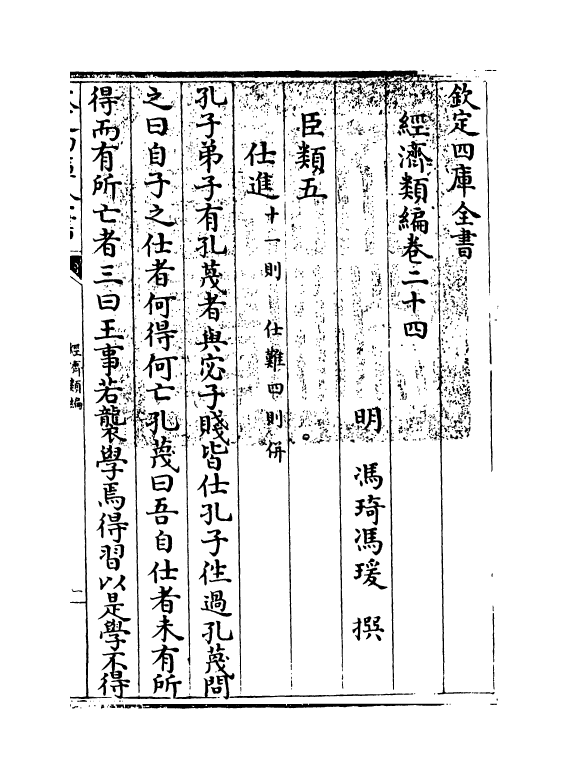 欽定四庫全書
經濟類編卷二十四
明 馮琦馮瑗 撰
臣類五
仕進十一則 仕難四則併
孔子弟子有孔蔑者與宓子賤皆仕孔子徃過孔蔑問
之曰自子之仕者何得何亡孔蔑曰吾自仕者未有所
得而有所亡者三曰王事若襲學焉得習以是學不得
經濟類編